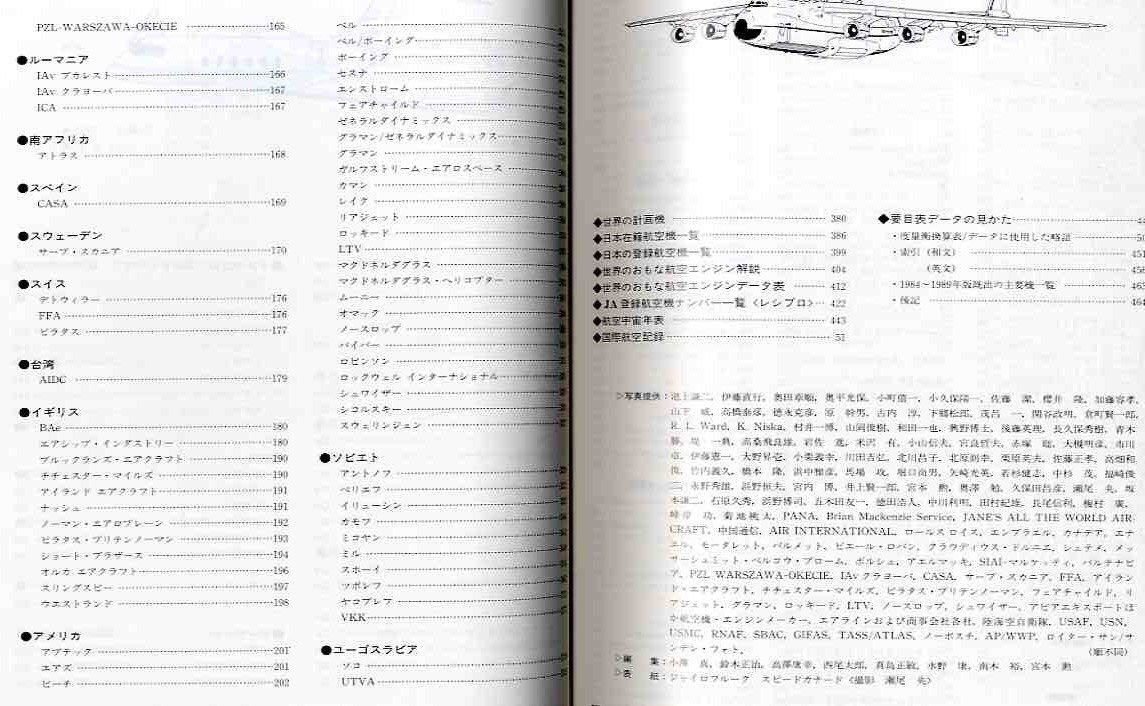 PZL-WARSZAWA-OKECIE 165
●ルーマニア
IAv ブカレスト 166
IAv クラヨーバ 167
ICA 167
●南アフリカ
アトラス 168
●スペイン
CASA 169
●スウェーデン
サーブ・スカニア 170
●スイス
デトウィラー 176
FFA 176
ピラタス 177
●台湾
AIDC 179
●イギリス
BAe 180
エアシップ・インダストリー 180
ブルックランズ・エアクラフト 190
チチェスター・マイルズ 190
アイランド エアクラフト 191
ナッシュ 191
ノーマン・エアロプレーン 192
ピラタス・ブリテンノーマン 193
ショート・ブラザース 194
オルカ エアクラフト 196
スリングスビー 197
ウエストランド 198
●アメリカ
アブテック 201
エアズ 201
ビーチ 202
ベル
ベル/ボーイング
ボーイング
セスナ
エンストローム
フェアチャイルド
ゼネラルダイナミックス
グラマン/ゼネラルダイナミックス
グラマン
ガルフストリーム・エアロスペース
カマン
レイク
リアジェット
ロッキード
LTV
マクドネルダグラス
マクドネルダグラス・ヘリコプター
ムーニー
オマック
ノースロップ
パイパー
ロビンソン
ロックウェル インターナショナル
シュワイザー
シコルスキー
スウェリンジェン
●ソビエト
アントノフ
ベリエフ
イリューシン
カモフ
ミコヤン
ミル
スホーイ
ツポレフ
ヤコブレフ
VKK
●ユーゴスラビア
ソコ
UTVA
◆世界の計画機 380
◆日本在籍航空機一覧 386
◆日本の登録航空機一覧 399
◆世界のおもな航空エンジン解説 404
◆世界のおもな航空エンジンデータ表 412
◆JA登録航空機ナンバー一覧〈レシプロ〉 422
◆航空宇宙年表 443
◆国際航空記録 51
◆要目表データの見かた
・度量衡換算表/データに使用した略語
・索引（和文） 451
（英文） 456
・1984～1989年版既出の主要機一覧 463
・後記 464
▷写真提供：池上謙二，伊藤直行，奥田章順，奥平光保，小町信一，小久保陽一，佐藤 潔，櫻井 隆，加藤容孝，
山下 威，高橋泰彦，徳永克彦，原 幹男，古内 淳，下郷松郎，茂呂 一，関谷政明，倉町賢一郎，
R. L. Ward, K. Niska, 村井一博，山岡俊樹，和田一也，奥野博士，後藤英理，長久保秀樹，青木
勝，堤 一典，高桑飛良雄，岩佐 進，米沢 有，小山信夫，宮良哲夫，赤塚 聡，大槻明彦，市川
卓，伊藤憲一，大野昇壱，小栗義幸，川田吉弘，北川昌子，北原則幸，栗原英夫，佐藤正孝，高畑和
俊，竹内義久，橋本 隆，浜中雅彦，馬場 攻，堀口尚男，矢崎光英，若杉健志，中杉 茂，福崎俊
二，水野秀雄，浜野恒夫，宮内 博，井上賢一郎，宮本 勲，奥澤 勉，久保田昌彦，瀬尾 央，坂
本謙二，石原久秀，浜野博司，五木田友一，徳田浩人，中川利明，田村紀雄，長尾信利，梅村 廣，
峰岸 功，菊池桃太，PANA, Brian Mackenzie Service, JANE'S ALL THE WORLD AIR-
CRAFT, 中国通信, AIR INTERNATIONAL, ロールス ロイス，エンブラエル，カナデア，エナ
エル，モータレット，バルメット，ピエール・ロバン，クラウディウス・ドルニエ，シェテメ，メッ
サーシュミット・ベルコウ・ブローム，ポルシェ，アエルマッキ，SIAI-マルケッティ，パルテナビ
ア，PZL WARSZAWA-OKECIE, IAvクラヨーバ，CASA，サーブ・スカニア，FFA，アイラン
ド・エアクラフト，チチェスター・マイルズ，ピラタス・ブリテンノーマン，フェアチャイルド，リ
アジェット，グラマン，ロッキード，LTV，ノースロップ，シュワイザー，アビアエキスポートほ
か航空機・エンジンメーカー，エアラインおよび商事会社各社，陸海空自衛隊，USAF, USN,
USMC, RNAF, SBAC, GIFAS, TASS/ATLAS, ノーボスチ，AP/WWP, ロイター・サン/サ
ンテン・フォト， （順不同）
▷編 集：小澤 真，鈴木正治，高澤康幸，西尾太郎，真島正敏，水野 康，南木 裕，宮本 勲
▷表 紙：ジャイロフルーク スピードカナード〈撮影 瀬尾 央〉